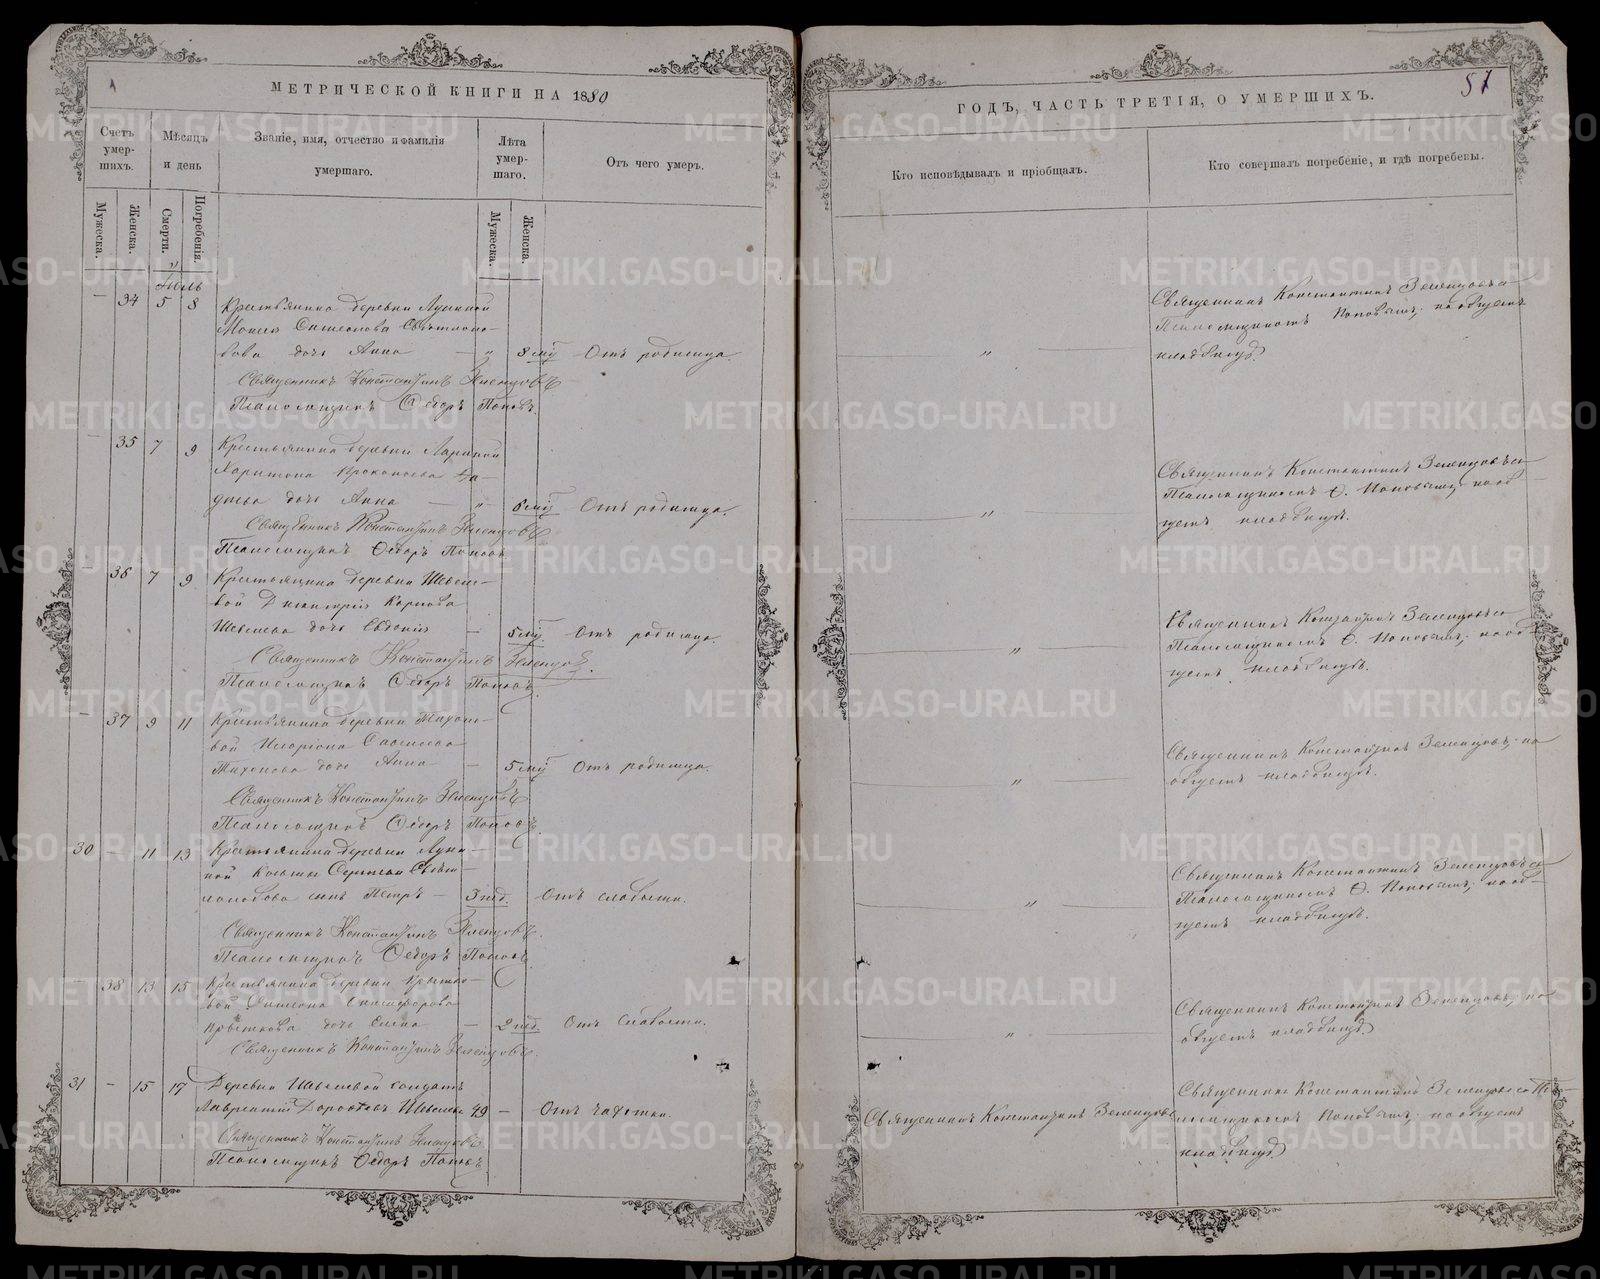 МЕТРИЧЕСКОЙ КНИГИ НА 1880
Счетъ умер-шихъ.
Мѣсяцъ и день
Званіе, имя, отчество и фамилія умершаго.
Лѣта умер-шаго.
Отъ чего умеръ.
Мужеска.
Женска.
Смерти.
Погребенія.
Мужеска.
Женска.
Іюль
— 34 5 8 Крестьянина деревни
дочь Анна — „ 8 мц Отъ родимца.
Священникъ Константинъ Зеленцовъ
Псаломщикъ Ѳедоръ Поповъ.
— 35 7 9 Крестьянина деревни
Харитона
дочь Анна — „ 6 мц Отъ родимца.
Священникъ Константинъ Зеленцовъ
Псаломщикъ Ѳедоръ Поповъ.
— 36 7 9 Крестьянина деревни Шевеле-
вой Димитрія Карпова
Шевелева дочь Евдокія — 5 мц. Отъ родимца.
Священникъ Константинъ Зеленцовъ.
Псаломщикъ Ѳедоръ Поповъ.
— 37 9 11 Крестьянина деревни Тихоно-
вой Иларіона Савельева
Тихонова дочь Анна — 5 мц Отъ родимца.
Священникъ Константинъ Зеленцовъ
Псаломщикъ Ѳедоръ Поповъ.
30 — 11 13 Крестьянина деревни
сынъ Петръ — 3 нед. Отъ слабости.
Священникъ Константинъ Зеленцовъ.
Псаломщикъ Ѳедоръ Поповъ
— 38 13 15 Крестьянина деревни
дочь Елена — 2 нед. Отъ слабости.
Священникъ Константинъ Зеленцовъ.
31 — 15 17 Деревни Шевелевой солдатъ
Лаврентій Дороѳеевъ Шевелевъ 49 — Отъ чахотки.
Священникъ Константинъ Зеленцовъ.
Псаломщикъ Ѳедоръ Поповъ
57
ГОДЪ, ЧАСТЬ ТРЕТІЯ, О УМЕРШИХЪ.
Кто исповѣдывалъ и пріобщалъ.
Кто совершалъ погребеніе, и гдѣ погребены.
Священникъ Константинъ Зеленцовъ съ
Псаломщикомъ Поповымъ; на общемъ
„ кладбищѣ
Священникъ Константинъ Зеленцовъ съ
Псаломщикомъ Ѳ. Поповымъ; на об-
„ щемъ кладбищѣ.
Священникъ Константинъ Зеленцовъ съ
Псаломщикомъ Ѳ. Поповымъ; на об-
„ щемъ кладбищѣ.
Священникъ Константинъ Зеленцовъ; на
„ общемъ кладбищѣ.
Священникъ Константинъ Зеленцовъ съ
Псаломщикомъ Ѳ. Поповымъ; на об-
„ щемъ кладбищѣ.
Священникъ Константинъ Зеленцовъ; на
„ общемъ кладбищѣ
Священникъ Константинъ Зеленцовъ съ Пса-
Священникъ Константинъ Зеленцовъ ломщикомъ Поповымъ; на общемъ
кладбищѣ
METRIKI.GASO-URAL.RU